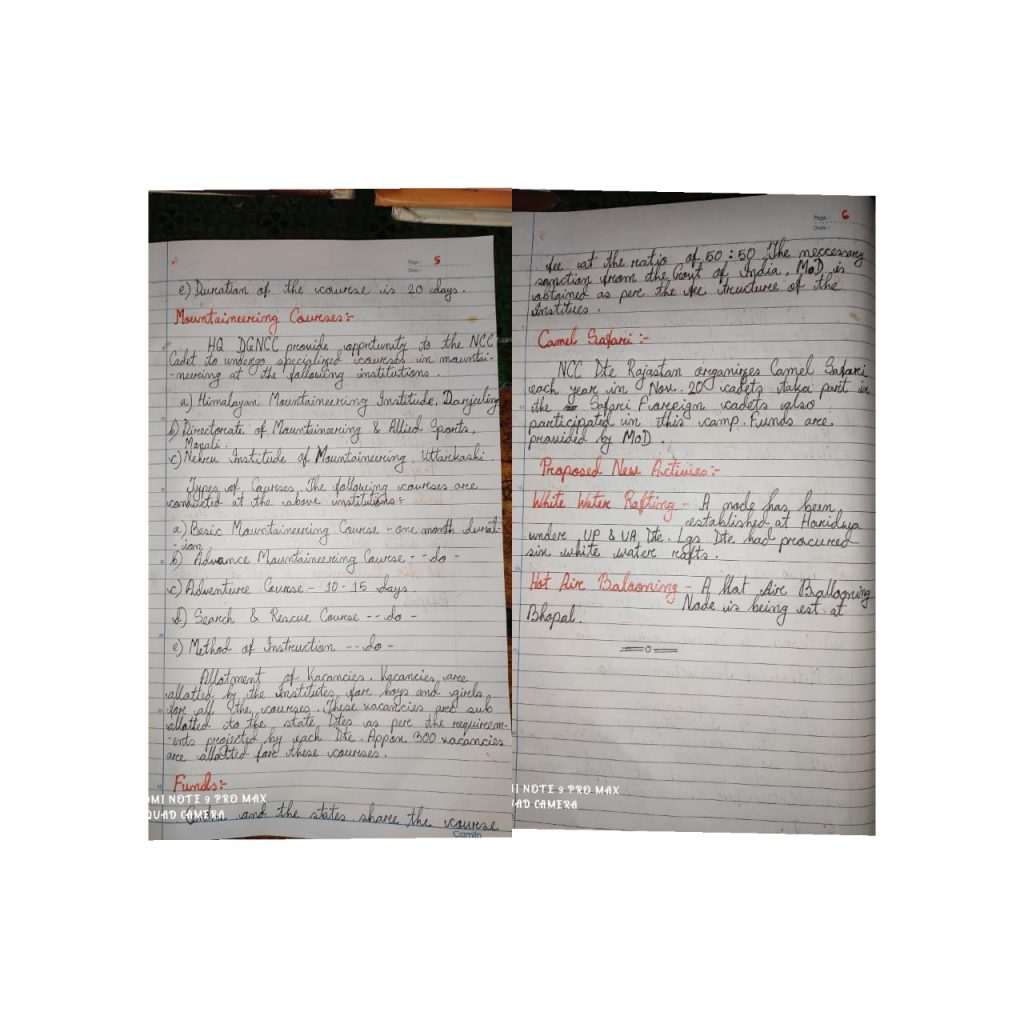 Page : 5
Date :
e) Duration of the course is 20 days.
Mountaineering Courses:-
HQ DGNCC provide opprtunity to the NCC
Cadet to undergo specialized courses in mountai-
-neering at the following institutions.
a) Himalayan Mountaineering Institude, Darjeeling
b) Directorate of Mountaineering & Allied Sports,
Manali.
c) Nehru Institude of Mountaineering, Uttarkashi.
Types of Courses. The following courses are
conducted at the above institutions:
a) Basic Mountaineering Course - one month durat-
-ion
b) Advance Mountaineering Course - - do -
c) Adventure Course - 10 - 15 days.
d) Search & Rescue Course - - do -
e) Method of Instruction - - do -
Allotment of Vacancies. Vacancies are
allotted by the Institutes for boys and girls
for all the courses. These vacancies are sub
allotted to the state Dtes as per the requirem-
-ents projected by each Dte. Approx 300 vacancies
are allotted for these courses.
Funds:-
and the states share the course
Camlin
MI NOTE 9 PRO MAX
QUAD CAMERA
Page : 6
Date :
fee at the ratio of 50 : 50. The neccessary
sanction from the Govt of India, MoD is
obtained as per the fee tructure of the
Institues.
Camel Safari :-
NCC Dte Rajastan organizes Camel Safari
each year in Nov. 20 cadets taka part in
the Safari Foreign cadets also
participated in this camp. Funds are
provided by MoD.
Proposed New Activies:-
White Water Rafting - A node has been
established at Haridwa
under UP & UA Dte. Lgs Dte had procured
six white water rafts.
Hot Air Balooning - A Hot Air Ballooning
Node is being est at
Bhopal.
MI NOTE 9 PRO MAX
AD CAMERA